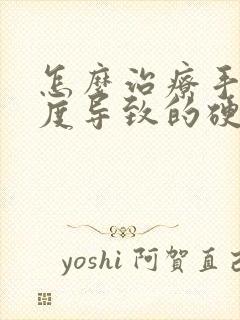 怎麼治療手
度导致的硬
yoshi 阿賀直己